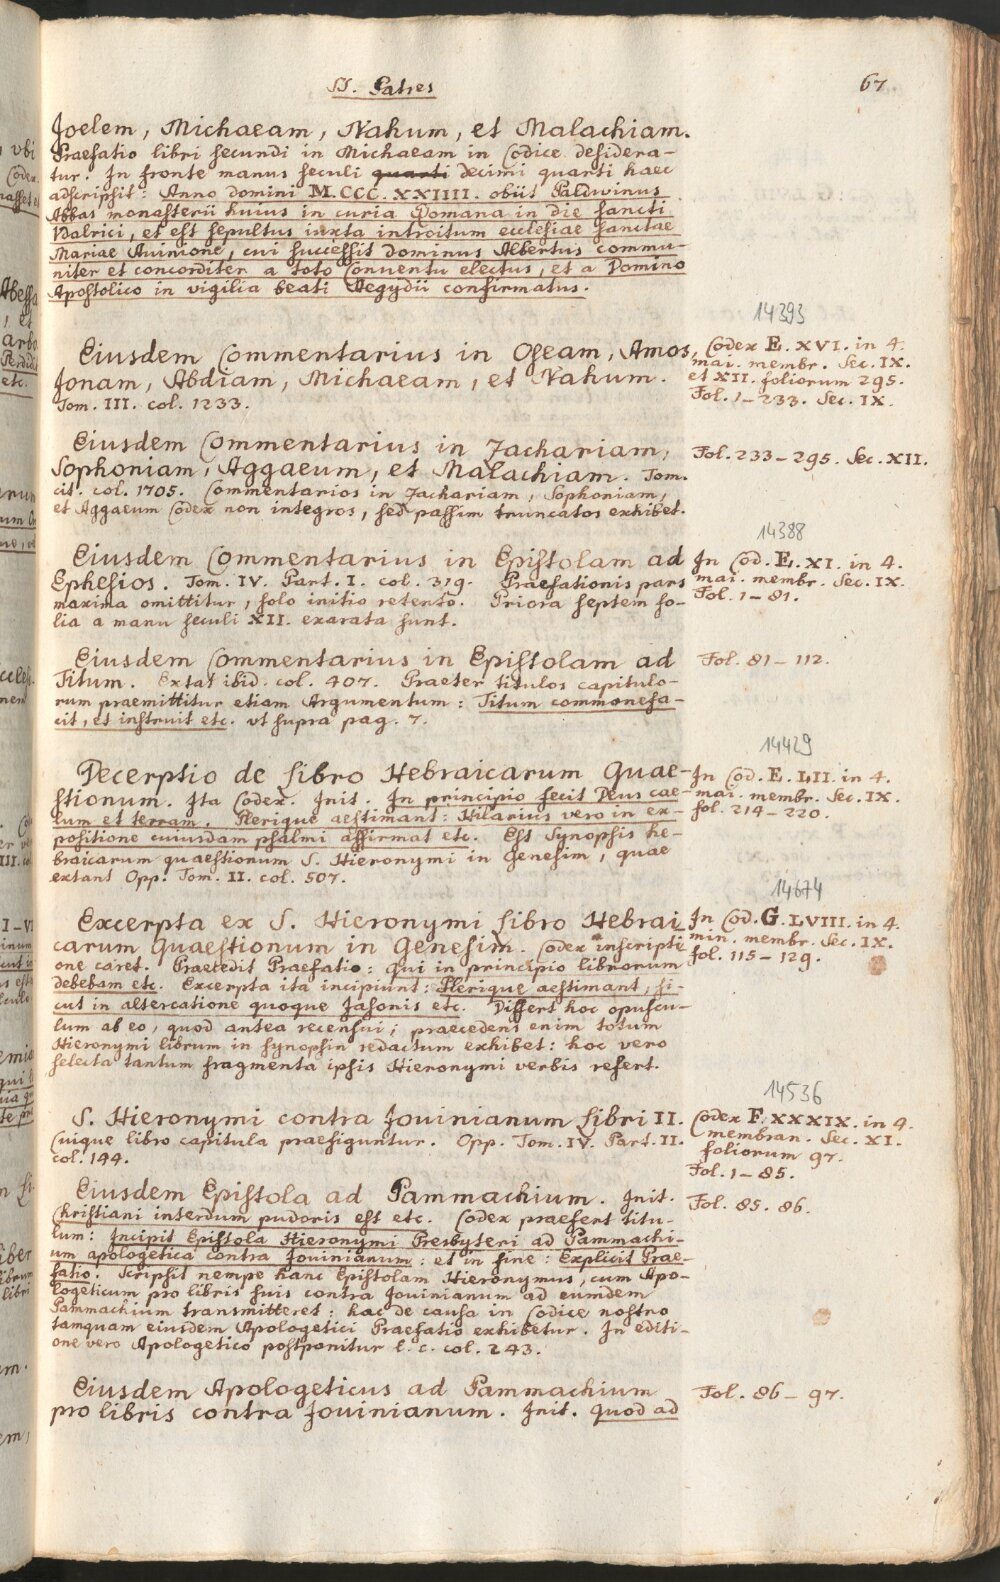 SS. Patres
67
Joelem, Michaeam, Nahum, et Malachiam.
Praefatio libri secundi in Michaeam in Codice desidera-
tur. In fronte manus seculi quarti decimi quarti haec
adscripsit: Anno domini M.CCC.XXIIII. obiit Baldwinus
Abbas monasterii huius in curia Romana in die sancti
Vdalrici, et est sepultus iuxta introitum ecclesiae sanctae
Mariae Auinione, cui successit dominus Albertus commu-
niter et concorditer a toto Conuentu electus, et a Domino
Apostolico in vigilia beati Aegydii confirmatus.
14393
Eiusdem Commentarius in Oseam, Amos,
Jonam, Abdiam, Michaeam, et Nahum.
Tom. III. col. 1233.
Codex E. XVI. in 4.
mai. membr. Sec. IX.
et XII. foliorum 295.
Fol. 1–233. Sec. IX.
Eiusdem Commentarius in Zachariam,
Sophoniam, Aggaeum, et Malachiam. Tom.
cit. col. 1705. Commentarios in Zachariam, Sophoniam,
et Aggaeum Codex non integros, sed passim truncatos exhibet.
Fol. 233–295. Sec. XII.
14388
Eiusdem Commentarius in Epistolam ad
Ephesios. Tom. IV. Part. I. col. 319. Praefationis pars
maxima omittitur, solo initio retento. Priora septem fo-
lia a manu seculi XII. exarata sunt.
In Cod. E. XI. in 4.
mai. membr. Sec. IX.
Fol. 1–81.
Eiusdem Commentarius in Epistolam ad
Titum. Extat ibid. col. 407. Praeter titulos capitulo-
rum praemittitur etiam Argumentum: Titum commonefa-
cit, et instruit etc. vt supra pag. 7.
Fol. 81–112.
14429
Decerptio de libro Hebraicarum Quae-
stionum. Ita Codex. Init. In principio fecit Deus cae-
lum et terram. Plerique aestimant: Hilarius vero in ex-
positione cuiusdam psalmi affirmat etc. Est Synopsis he-
braicarum quaestionum S. Hieronymi in Genesim, quae
extant Opp. Tom. II. col. 507.
In Cod. E. LII. in 4.
mai. membr. Sec. IX.
fol. 214–220.
14674
Excerpta ex S. Hieronymi libro Hebrai-
carum Quaestionum in Genesim. Codex inscripti-
one caret. Praecedit Praefatio: Qui in principio librorum
debebam etc. Excerpta ita incipiunt: Plerique aestimant, si-
cut in altercatione quoque Jasonis etc. Differt hoc opuscu-
lum ab eo, quod antea recensui; praecedens enim totum
Hieronymi librum in synopsin redactum exhibet: hoc vero
selecta tantum fragmenta ipsis Hieronymi verbis refert.
In Cod. G. LVIII. in 4.
min. membr. Sec. IX.
fol. 115–129.
14536
S. Hieronymi contra Jouinianum libri II.
Cuique libro capitula praefiguntur. Opp. Tom. IV. Part. II.
col. 144.
Codex F. XXXIX. in 4.
membran. Sec. XI.
foliorum 97.
Fol. 1–85.
Eiusdem Epistola ad Pammachium. Init.
Christiani interdum pudoris est etc. Codex praefert titu-
lum: Incipit Epistola Hieronymi Presbyteri ad Pammachi-
um apologetica contra Jouinianum: et in fine: Explicit Prae-
fatio. Scripsit nempe hanc Epistolam Hieronymus, cum Apo-
logeticum pro libris suis contra Jouinianum ad eumdem
Pammachium transmitteret: hac de causa in Codice nostro
tamquam eiusdem Apologetici Praefatio exhibetur. In editi-
one vero Apologetico postponitur l. c. col. 243.
Fol. 85. 86.
Eiusdem Apologeticus ad Pammachium
pro libris contra Jouinianum. Init. Quod ad
Fol. 86–97.